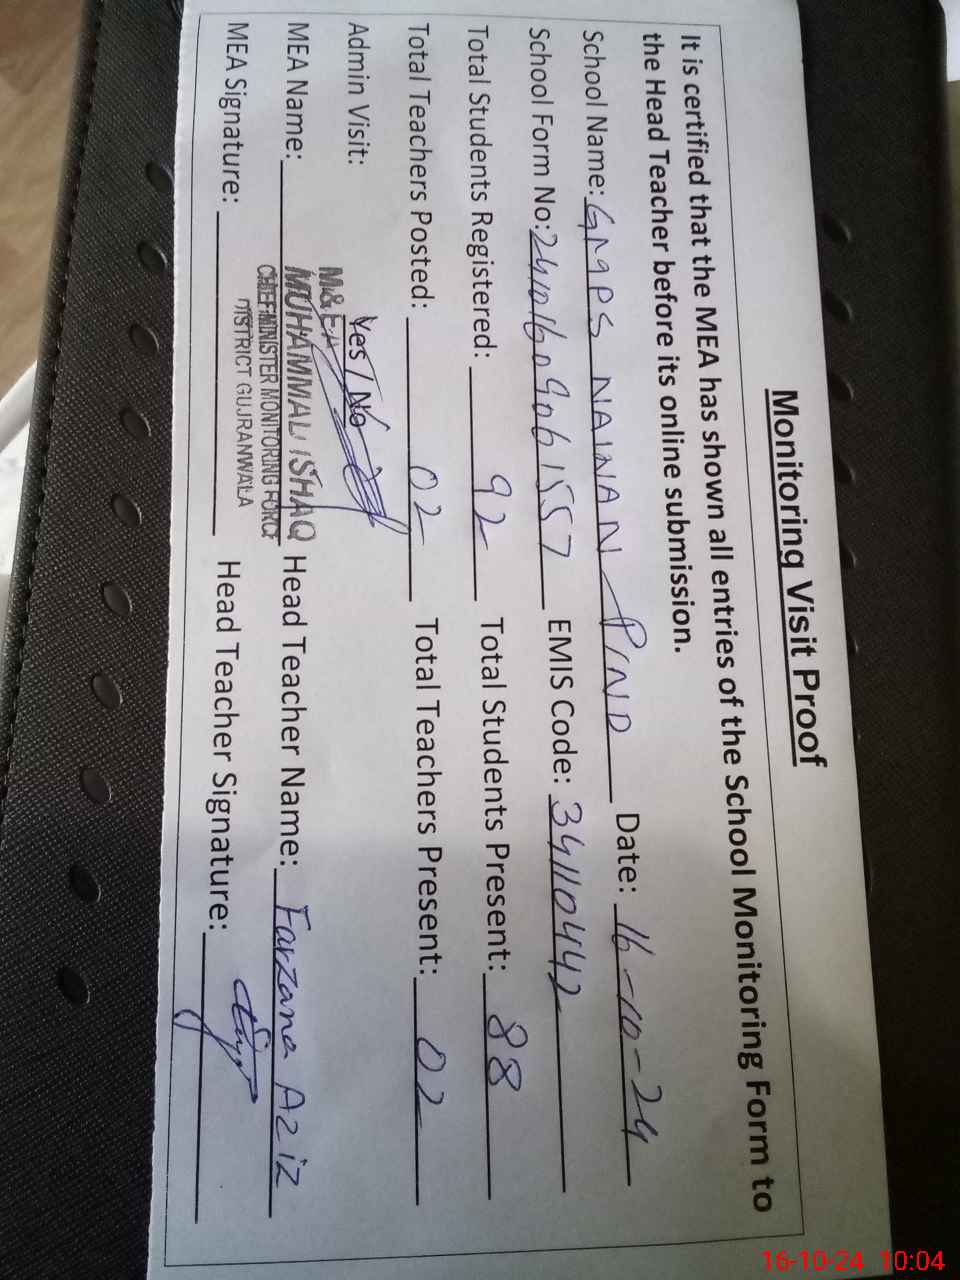 Monitoring Visit Proof
It is certified that the MEA has shown all entries of the School Monitoring Form to
the Head Teacher before its online submission.
School Name: GMPS NAINAN PIND Date: 16-10-24
School Form No: 241016090906157 EMIS Code: 34110442
Total Students Registered: 92 Total Students Present: 88
Total Teachers Posted: 02 Total Teachers Present: 02
Admin Visit: Yes / No
M&EA
MEA Name: MUHAMMAD ISHAQ Head Teacher Name: Farzana Aziz
CHIEF MINISTER MONITORING FORCE
DISTRICT GUJRANWALA
MEA Signature: Head Teacher Signature:
16-10-24 10:04